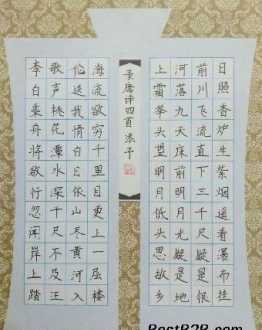 日照香炉生紫烟遥看瀑布挂
前川飞流直下三千尺疑是银
河落九天床前明月光疑是地
上霜举头望明月低头思故乡
录唐诗四首
李白乘舟将欲行忽闻岸上踏
歌声桃花潭水深千尺不及汪
伦送我情白日依山尽黄河入
海流欲穷千里目更上一层楼
BestB2B.com